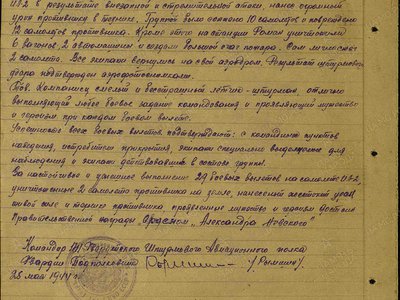 Ил-2 в результате внезапной и стремительной атаки, нанес огромный
урон противнику в технике. Группой было сожжено 10 самолетов и повреждено
12 самолетов противника. Кроме этого на станции уничтожили
6 вагонов, 2 автомашины и создали большой очаг пожара. Сам лично сжег
2 самолета. Все экипажи вернулись на свой аэродром. Результат штурмового
удара подтвержден аэрофотоснимками.
Тов. Компаниец смелый и бесстрашный летчик-штурман, отлично
выполняющий любое боевое задание командования и проявляющий мужество
и героизм при каждом боевом вылете.
Успешность всех боевых вылетов подтверждают: с командных пунктов
наведения, истребители прикрытия, экипажи специально выделенные для
наблюдения и экипажи действовавшие в составе группы.
За настойчивое и успешное выполнение 29 боевых вылетов на самолете Ил-2,
уничтоженные 2 самолета противника на земле, нанесенный жестокий урон
живой силе и технике противника проявленные мужество и героизм достоин
Правительственной награды Орденом "Александра Невского"
Командир Гвардейского Штурмового Авиационного полка
Гвардии Подполковник /Рымшин/.
28 мая 1944 г.